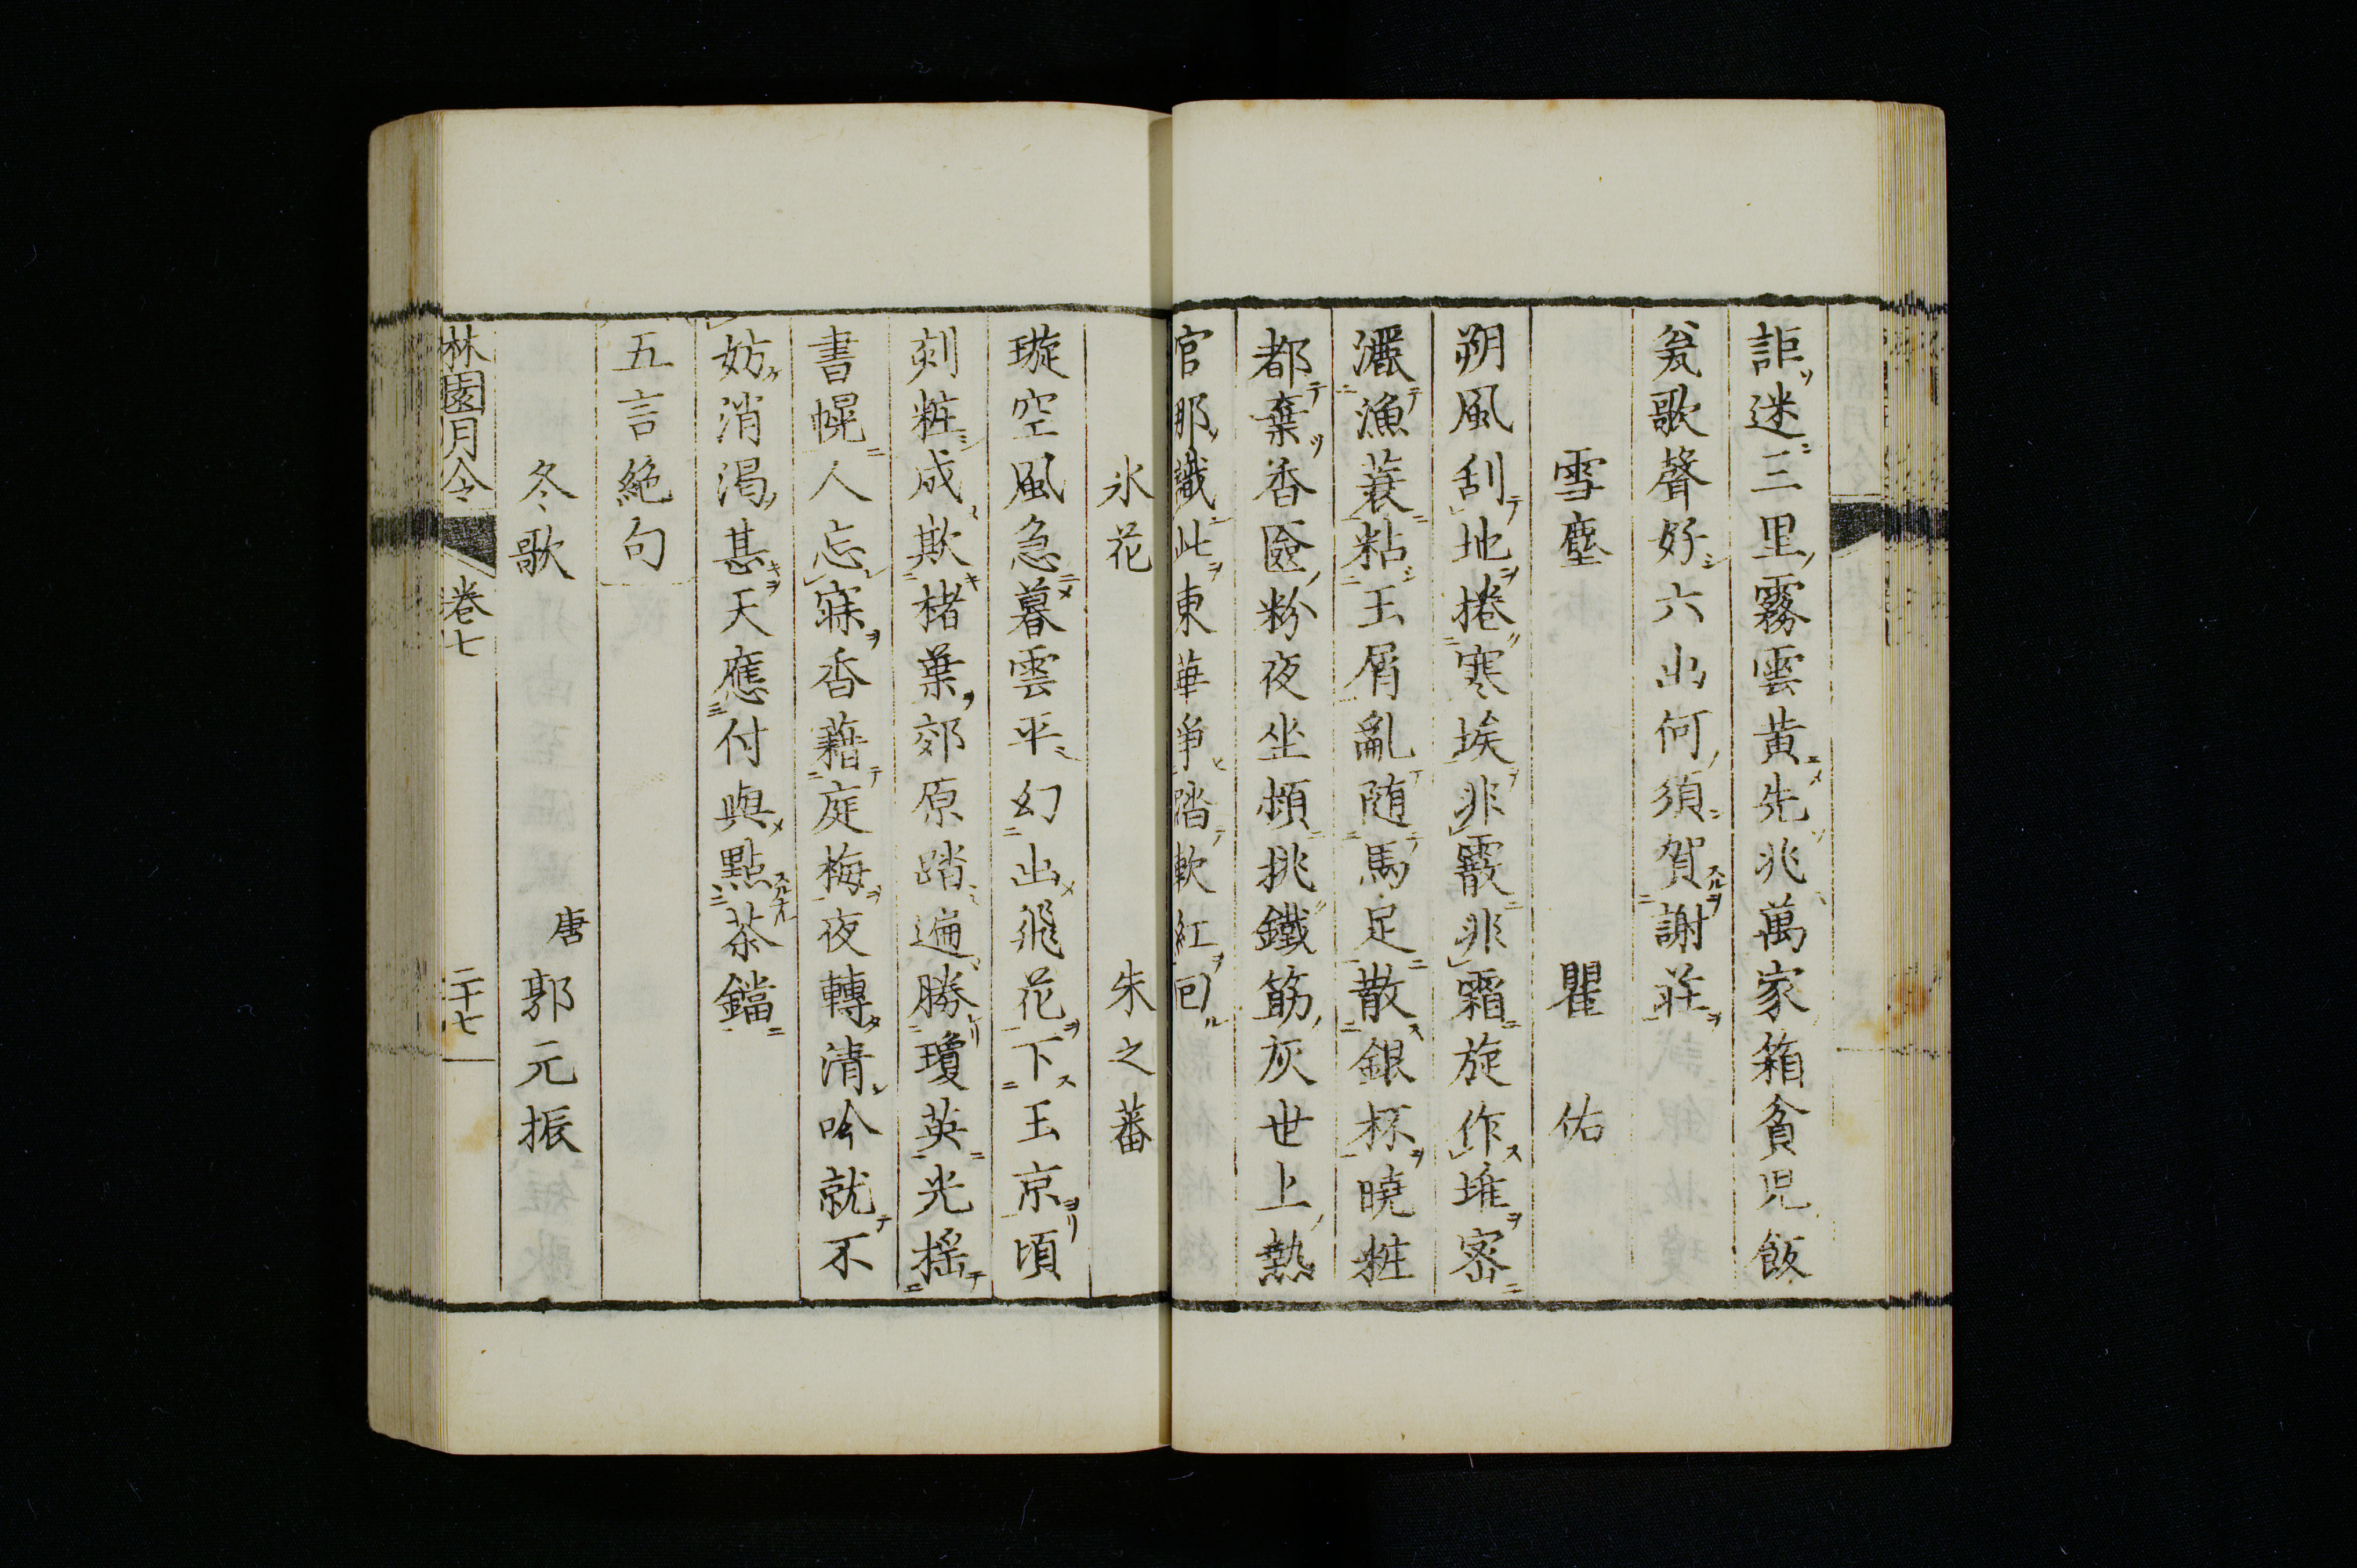 詎迷三里霧雲黄先兆萬家箱貧児飯
瓮歌聲好六出何須賀謝莊
雪塵　瞿佑
朔風刮地捲寒埃非霰非霜旋作堆密
灑漁蓑粘玉屑亂随馬足散銀杯曉粧
都棄香奩粉夜坐頻挑鐵筯灰世上熱
官那識此東華爭踏軟紅回
氷花　朱之蕃
璇空風急暮雲平幻出飛花下玉京頃
刻粧成欺楮葉郊原踏遍勝瓊英光揺
書幌人忘寐香藉庭梅夜轉清吟就不
妨消渇甚天應付與點茶鐺
五言絶句
冬歌　唐郭元振
林園月令　卷七　二十七